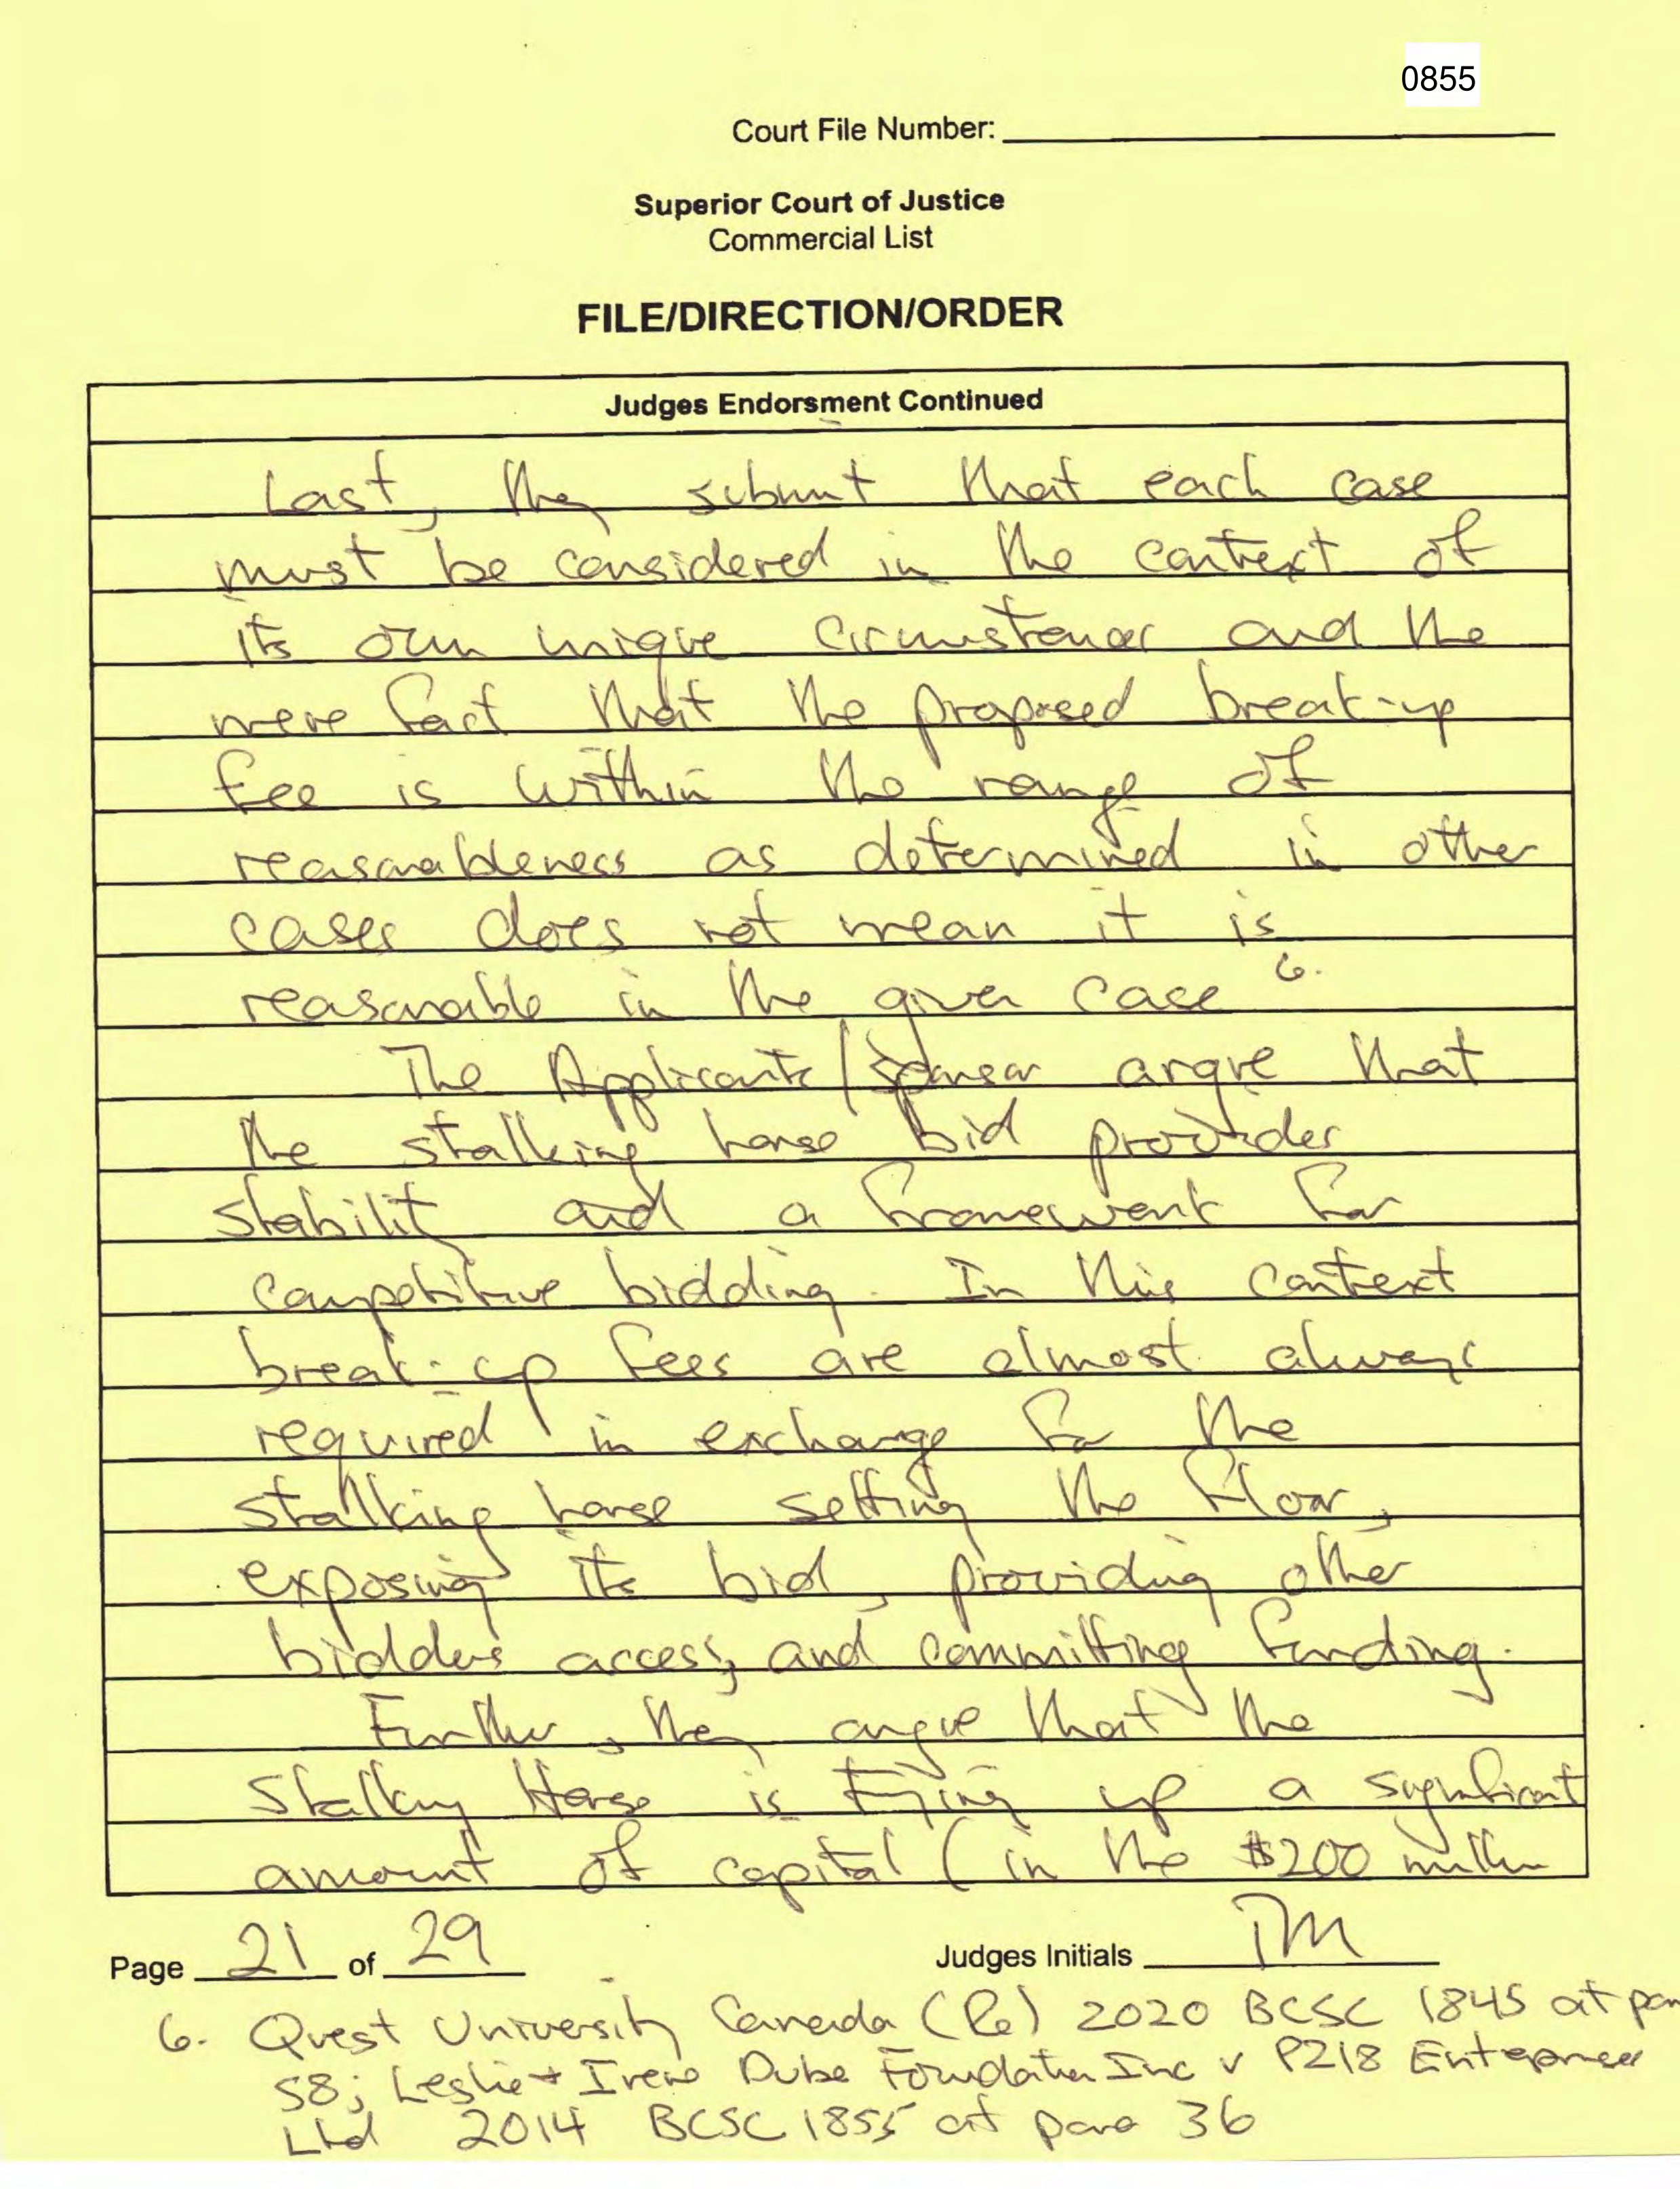 0855
Court File Number:
Superior Court of Justice
Commercial List
FILE/DIRECTION/ORDER
Judges Endorsment Continued
Last, they submit that each case
must be considered in the context of
its own unique circumstances and the
mere fact that the proposed break-up
fee is within the range of
reasonableness as determined in other
cases does not mean it is
reasonable in the given case 6.
The Applicants/Sponsor argue that
the stalking horse bid provides
stability and a framework for
competitive bidding. In this context
break-up fees are almost always
required in exchange for the
stalking horse setting the floor,
exposing its bid, providing other
bidders access, and committing funding.
Further, they argue that the
Stalking Horse is tying up a significant
amount of capital (in the $200 million
Page 21 of 29
Judges Initials TM
6. Quest University Canada (Re) 2020 BCSC 1845 at par
58; Leslie + Irene Dube Foundation Inc v P218 Enterprises
Ltd 2014 BCSC 1855 at para 36